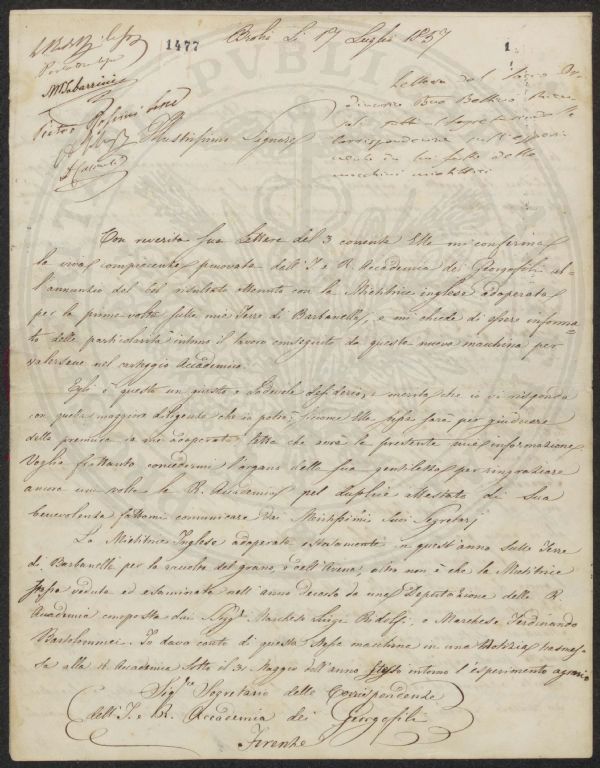 1477
Brolio Li 17 Luglio 1857
1
Lettera del Socio Or-
dinario Bettino Rica-
soli al Segretario delle
Corrispondenze sull'esperi-
mento da lui fatto delle
macchine mietitrici
Pietro
Illustrissimo Signore
Con reverita sua Lettera del 3 corrente Ella mi conferma
la viva compiacenza provata dall'I. e R. Accademia dei Georgofili al-
l'annunzio del bel resultato ottenuto con la Mietitrice inglese adoperata
per la prima volta sulle mie Terre di Barbanella, e mi chiede di essere informa-
to delle particolarità intorno il lavoro conseguito da questa nuova macchina per
valersene nel carteggio Accademico.
Egli è questo un giusto e Lodevole desiderio, e merita che io vi risponda
con quella maggiore diligenza che io potrò; siccome Ella stessa sarà per giudicare
della premura da me adoperata, letta che avrà la presente mia informazione.
Voglia frattanto concedermi l'organo della sua gentilezza per ringraziare
ancora una volta la R. Accademia pel duplice attestato di Sua
benevolenza fattami comunicare dai Meritissimi suoi Segretarj
La Mietitrice Inglese adoperata estesamente in quest'anno sulle Terre
di Barbanella per la raccolta del grano, e dell'Avena, altro non è che la Mietitrice
stessa veduta ed esaminata nell'anno decorso da una Deputazione della R.
Accademia composta dai Sigg.ri Marchese Luigi Ridolfi, e Marchese Ferdinando
Bartolommei. Io dava conto di questa stessa macchina in una Notizia trasmes-
sa alla R. Accademia sotto il 31 Maggio dell'anno stesso intorno l'esperimento agrario
Sig.re Segretario delle Corrispondenze
dell'I. e R. Accademia dei Georgofili
Firenze